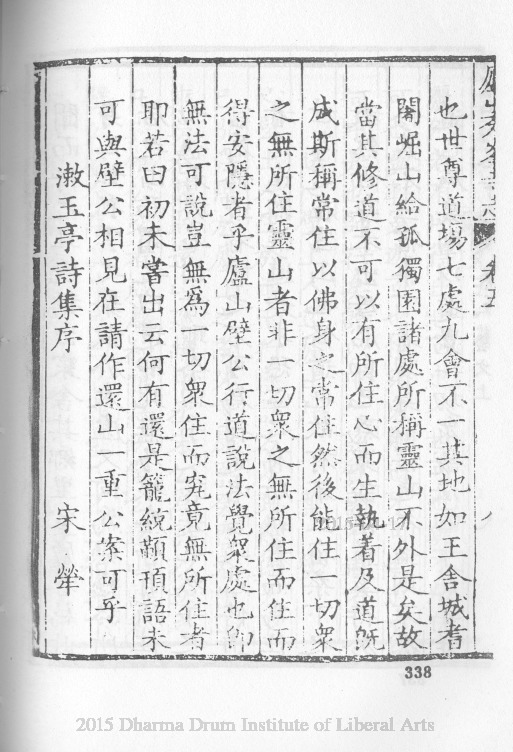 廬山秀峯寺志 卷五 八
也世尊道塲七處九會不一其地如王舍城耆
闍崛山給孤獨園諸處所稱靈山不外是矣故
當其修道不可以有所住心而生執着及道旣
成斯稱常住以佛身之常住然後能住一切衆
之無所住靈山者非一切衆之無所住而住而
得安隱者乎廬山壁公行道說法覺衆處也卽
無法可說豈無爲一切衆住而究竟無所住者
耶若曰初未嘗出云何有還是籠統顢頇語未
可與壁公相見在請作還山一重公案可乎
漱玉亭詩集序 宋犖
338
2015 Dharma Drum Institute of Liberal Arts